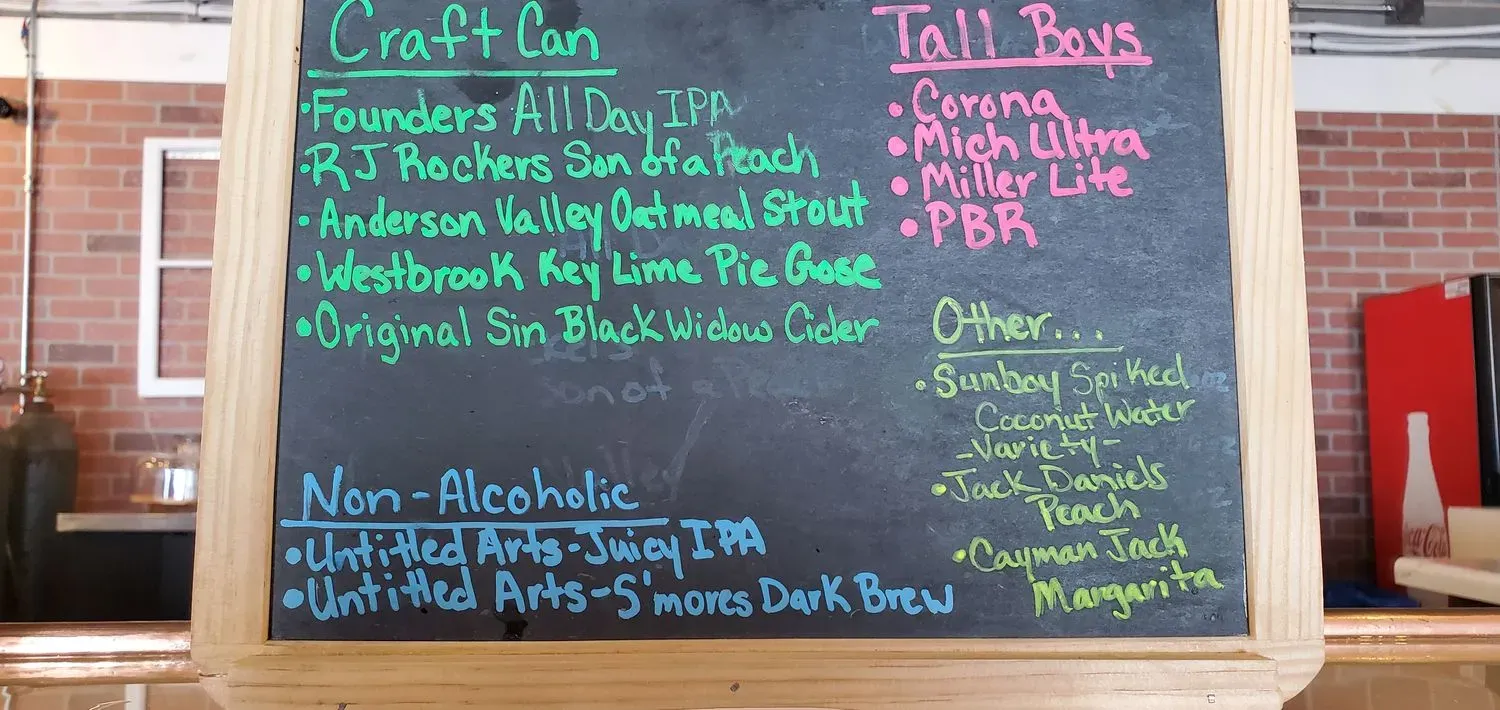 Craft Can
•Founders All Day IPA
•RJ Rockers Son of a Peach
•Anderson Valley Oatmeal Stout
•Westbrook Key Lime Pie Gose
•Original Sin Black Widow Cider
Non-Alcoholic
•Untitled Arts-Juicy IPA
•Untitled Arts-S'mores Dark Brew
Tall Boys
•Corona
•Mich Ultra
•Miller Lite
•PBR
Other...
•Sunboy Spiked
Coconut Water
-Variety-
•Jack Daniels
Peach
•Cayman Jack
Margarita
Coca-Cola